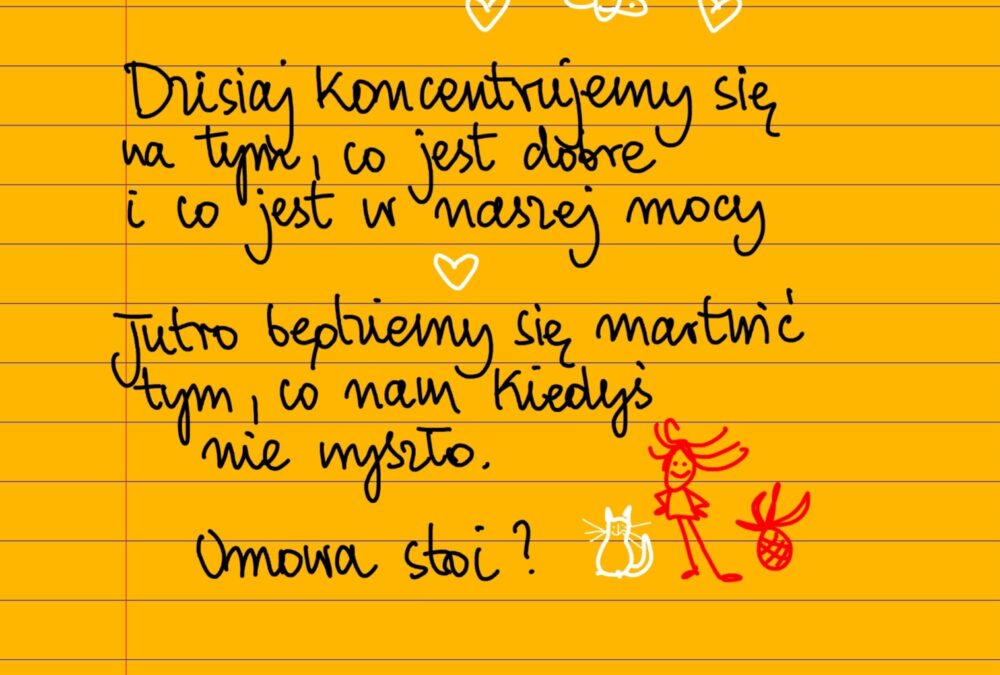 Dzisiaj koncentrujemy się
na tym, co jest dobre
i co jest w naszej mocy
Jutro będziemy się martwić
tym, co nam kiedyś
nie wyszło.
Umowa stoi?